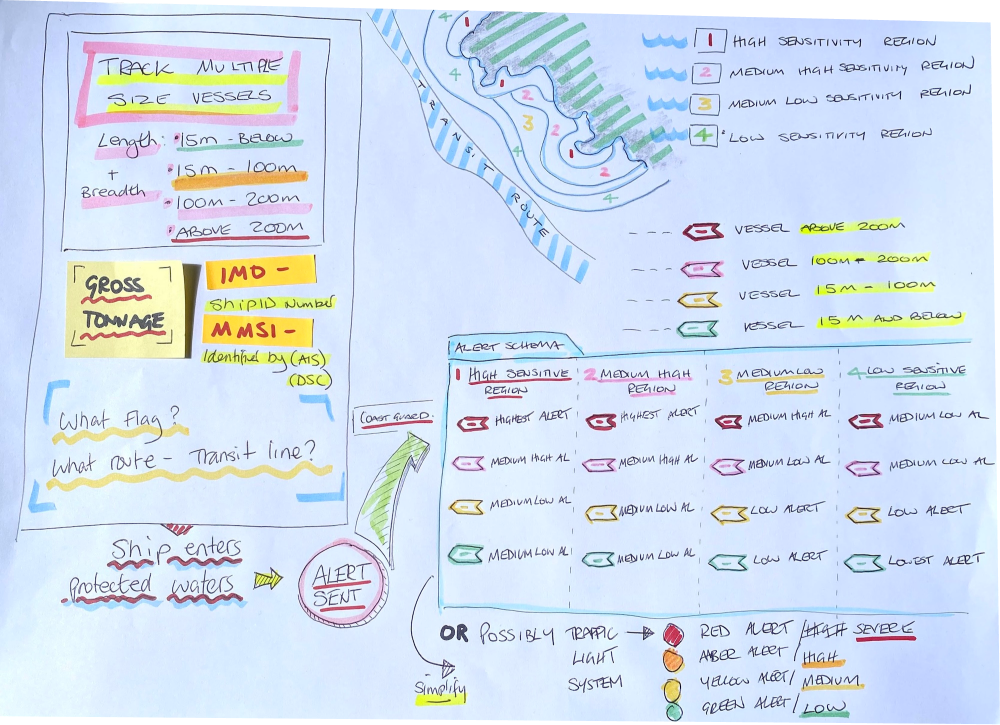 TRACK MULTIPLE
SIZE VESSELS
Length: • 15m - BELOW
+
Breadth
• 15m - 100m
• 100m - 200m
• ABOVE 200m
GROSS
TONNAGE
IMO -
Ship ID Number
MMSI -
Identified by (AIS)
(DSC)
What flag?
What route - Transit line?
Ship enters
protected waters
ALERT
SENT
COAST GUARD.
TRANSIT ROUTE
1
4
2
3
2
4
1
2
4
1 HIGH SENSITIVITY REGION
2 MEDIUM HIGH SENSITIVITY REGION
3 MEDIUM LOW SENSITIVITY REGION
4 LOW SENSITIVITY REGION
VESSEL ABOVE 200M
VESSEL 100M - 200M
VESSEL 15M - 100M
VESSEL 15M AND BELOW
ALERT SCHEMA
1 HIGH SENSITIVE
REGION
HIGHEST ALERT
MEDIUM HIGH AL
MEDIUM LOW AL
MEDIUM LOW AL
2 MEDIUM HIGH
REGION
HIGHEST ALERT
MEDIUM HIGH AL
MEDIUM LOW AL
MEDIUM LOW AL
3 MEDIUM LOW
REGION
MEDIUM HIGH AL
MEDIUM LOW AL
LOW ALERT
LOW ALERT
4 LOW SENSITIVE
REGION
MEDIUM LOW AL
MEDIUM LOW AL
LOW ALERT
LOWEST ALERT
Simplify
OR POSSIBLY TRAFFIC
LIGHT
SYSTEM
RED ALERT / HIGH SEVERE
AMBER ALERT / HIGH
YELLOW ALERT / MEDIUM
GREEN ALERT / LOW